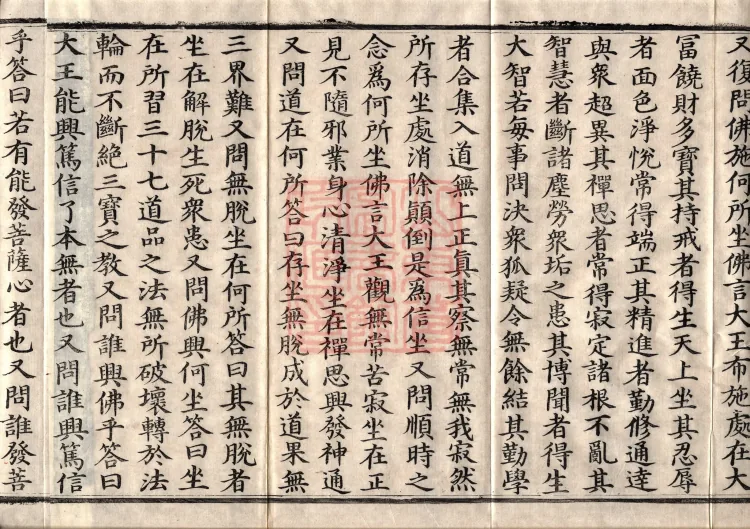 又復問佛施何所坐佛言大王布施處在大
富饒財多寶其持戒者得生天上坐其忍辱
者面色淨悅常得端正其精進者勤修通達
與眾超異其禪思者常得寂定諸根不亂其
智慧者斷諸塵勞眾垢之患其博聞者得生
大智若每事問決眾狐疑令無餘結其勤學
者合集入道無上正真其察無常無我寂然
所存坐處消除顛倒是為信坐又問順時之
念為何所坐佛言大王觀無常苦寂坐在正
見不隨邪業身心清淨坐在禪思興發神通
又問道在何所答曰存坐無脫成於道果無
三界難又問無脫坐在何所答曰其無脫者
坐在解脫生死眾患又問佛興何坐答曰坐
在所習三十七道品之法無所破壞轉於法
輪而不斷絕三寶之教又問誰興佛乎答曰
大王能興篤信了本無者也又問誰興篤信
乎答曰若有能發菩薩心者也又問誰發菩